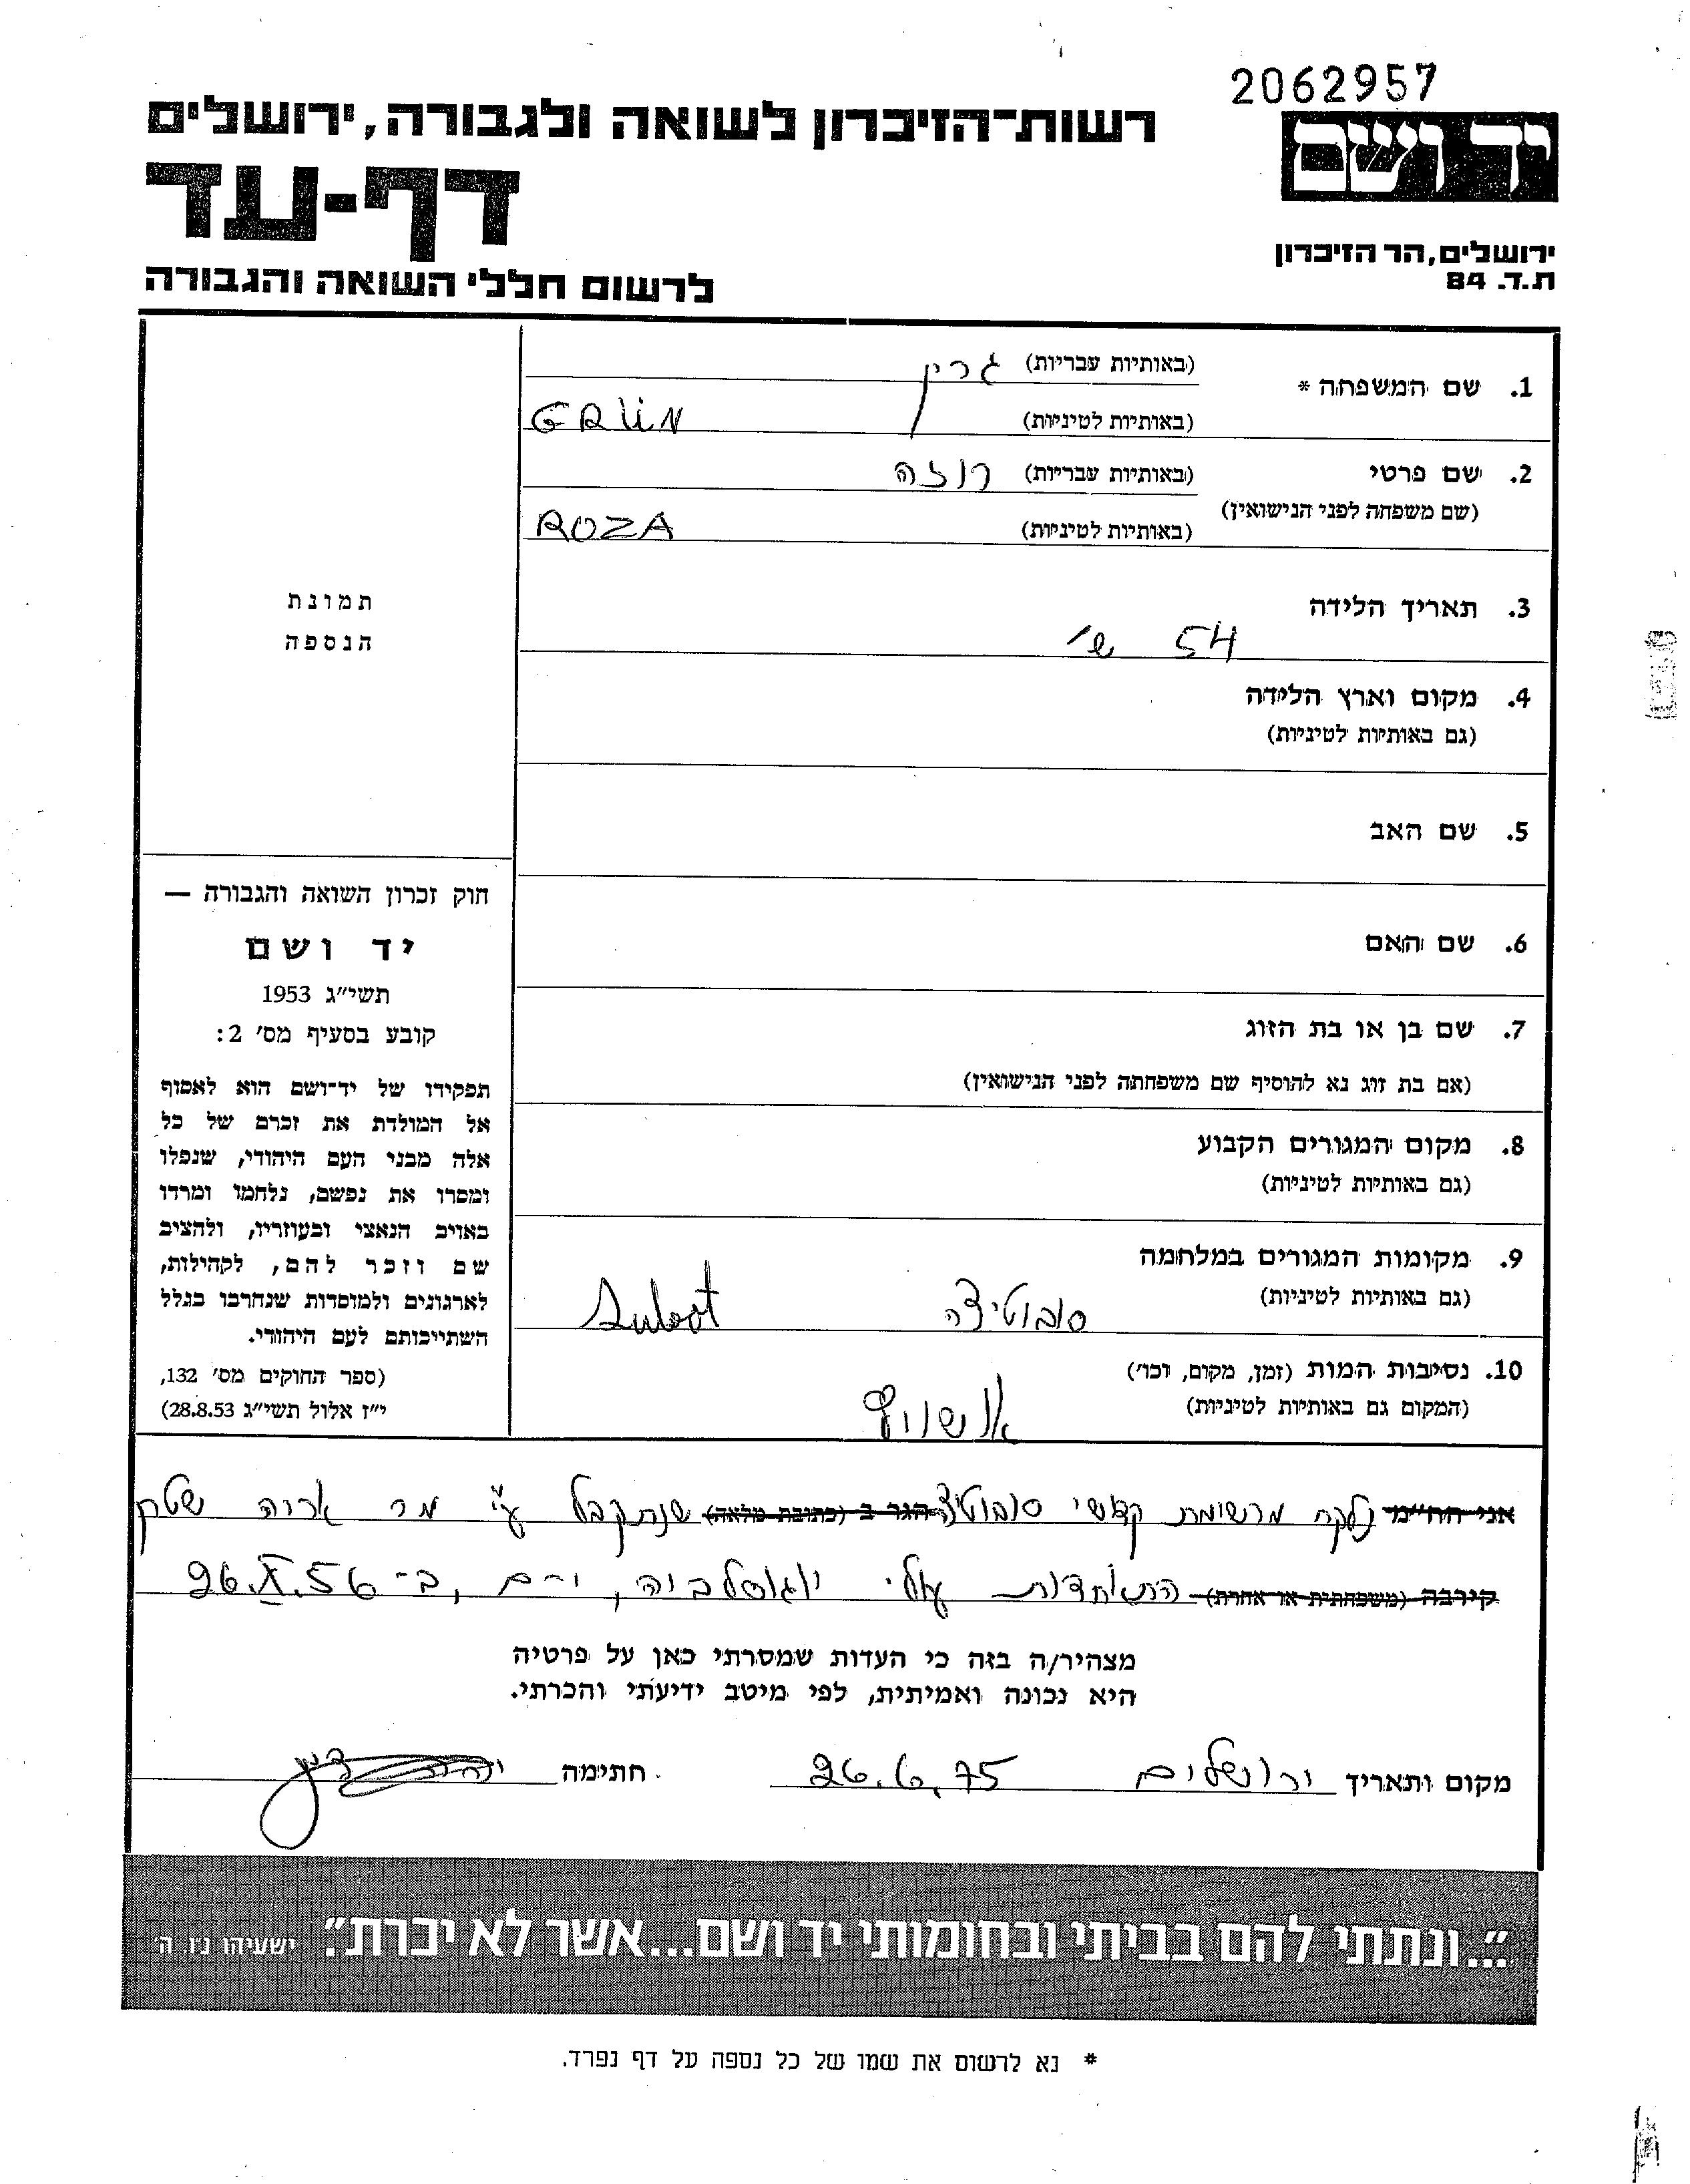 2062957
רשות־הזיכרון לשואה ולגבורה, ירושלים
יד ושם
דף-עד
ירושלים, הר הזיכרון
ת.ד. 84
לרשום חללי השואה והגבורה
1. שם המשפחה * (באותיות עבריות) גרין
(באותיות לטיניות) GRÜN
2. שם פרטי (באותיות עבריות) רוזה
(שם משפחה לפני הנישואין)
(באותיות לטיניות) ROZA
3. תאריך הלידה
54 ש'
4. מקום וארץ הלידה
(גם באותיות לטיניות)
5. שם האב
6. שם האם
7. שם בן או בת הזוג
(אם בת זוג נא להוסיף שם משפחתה לפני הנישואין)
8. מקום המגורים הקבוע
(גם באותיות לטיניות)
9. מקומות המגורים במלחמה
(גם באותיות לטיניות) סובוטיצה Subot
10. נסיבות המות (זמן, מקום, וכו')
(המקום גם באותיות לטיניות) אושויץ
תמונת
הנספה
חוק זכרון השואה והגבורה —
יד ושם
תשי"ג 1953
קובע בסעיף מס' 2:
תפקידו של יד־ושם הוא לאסוף
אל המולדת את זכרם של כל
אלה מבני העם היהודי, שנפלו
ומסרו את נפשם, נלחמו ומרדו
באויב הנאצי ובעוזריו, ולהציב
שם וזכר להם, לקהילות,
לארגונים ולמוסדות שנחרבו בגלל
השתייכותם לעם היהודי.
(ספר החוקים מס' 132,
י"ז אלול תשי"ג 28.8.53)
אני הח"מ נלקח מרשימת קדושי סובוטיצה הגר ב (כתובת מלאה) שנתקבל ע"י מר אריה שטרן
קירבה (משפחתית או אחרת) התאחדות עולי יוגוסלביה, י-ם, ב-26.X.56
מצהיר/ה בזה כי העדות שמסרתי כאן על פרטיה
היא נכונה ואמיתית, לפי מיטב ידיעתי והכרתי.
מקום ותאריך ירושלים 26.6.75 חתימה
"...ונתתי להם בביתי ובחומותי יד ושם...אשר לא יכרת". ישעיהו נ"ו, ה'
* נא לרשום את שמו של כל נספה על דף נפרד.